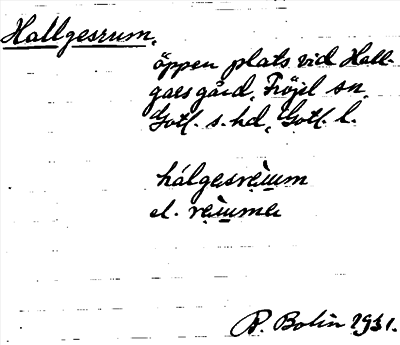 Hallgesrum,
öppen plats vid Hall-
gaes gård, Fröjel sn,
Gotl. s. hd, Gotl. l.
hálgesreuum
el. reuume
R. Bolin 1931.